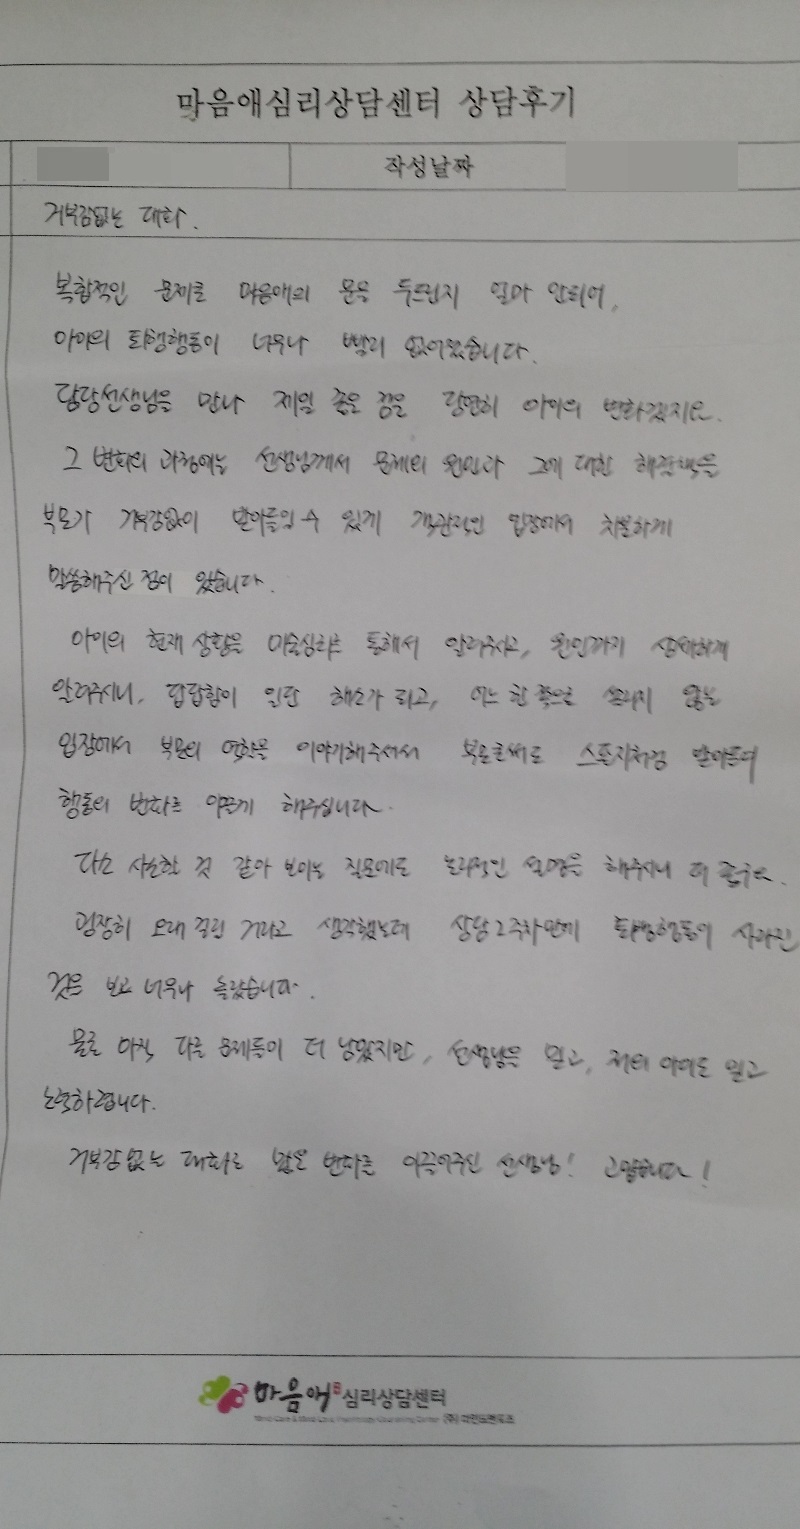 마음애심리상담센터 상담후기
작성날짜
거부감없는 대화.
복합적인 문제로 마음애의 문을 두드린지 얼마 안되어,
아이의 퇴행행동이 너무나 빨리 없어졌습니다.
담당선생님을 만나 제일 좋은 점은 당연히 아이의 변화겠지요.
그 변화의 과정에는 선생님께서 문제의 원인과 그에 대한 해결책을
부모가 거부감없이 받아들일 수 있게 객관적인 입장에서 차분하게
말씀해주신 점이 있습니다.
아이의 현재 상황을 미술심리를 통해서 알려주시고, 원인까지 상세하게
알려주시니, 답답함이 일단 해소가 되고, 어느 한 쪽으로 쏠리지 않는
입장에서 부모의 역할을 이야기해주셔서 부모로써도 스폰지처럼 받아들여
행동의 변화를 이끌게 해주십니다.
다소 사소한 것 같아 보이는 질문에도 논리적인 설명을 해주시니 더 좋구요.
굉장히 오래 걸릴 거라고 생각했는데 상담 2주차만에 퇴행행동이 사라진
것을 보고 너무나 놀랐습니다.
물론 아직 다른 문제들이 더 남았지만, 선생님을 믿고, 저의 아이도 믿고
노력하렵니다.
거부감없는 대화로 밝은 변화를 이끌어주신 선생님! 고맙습니다!
마음애 심리상담센터